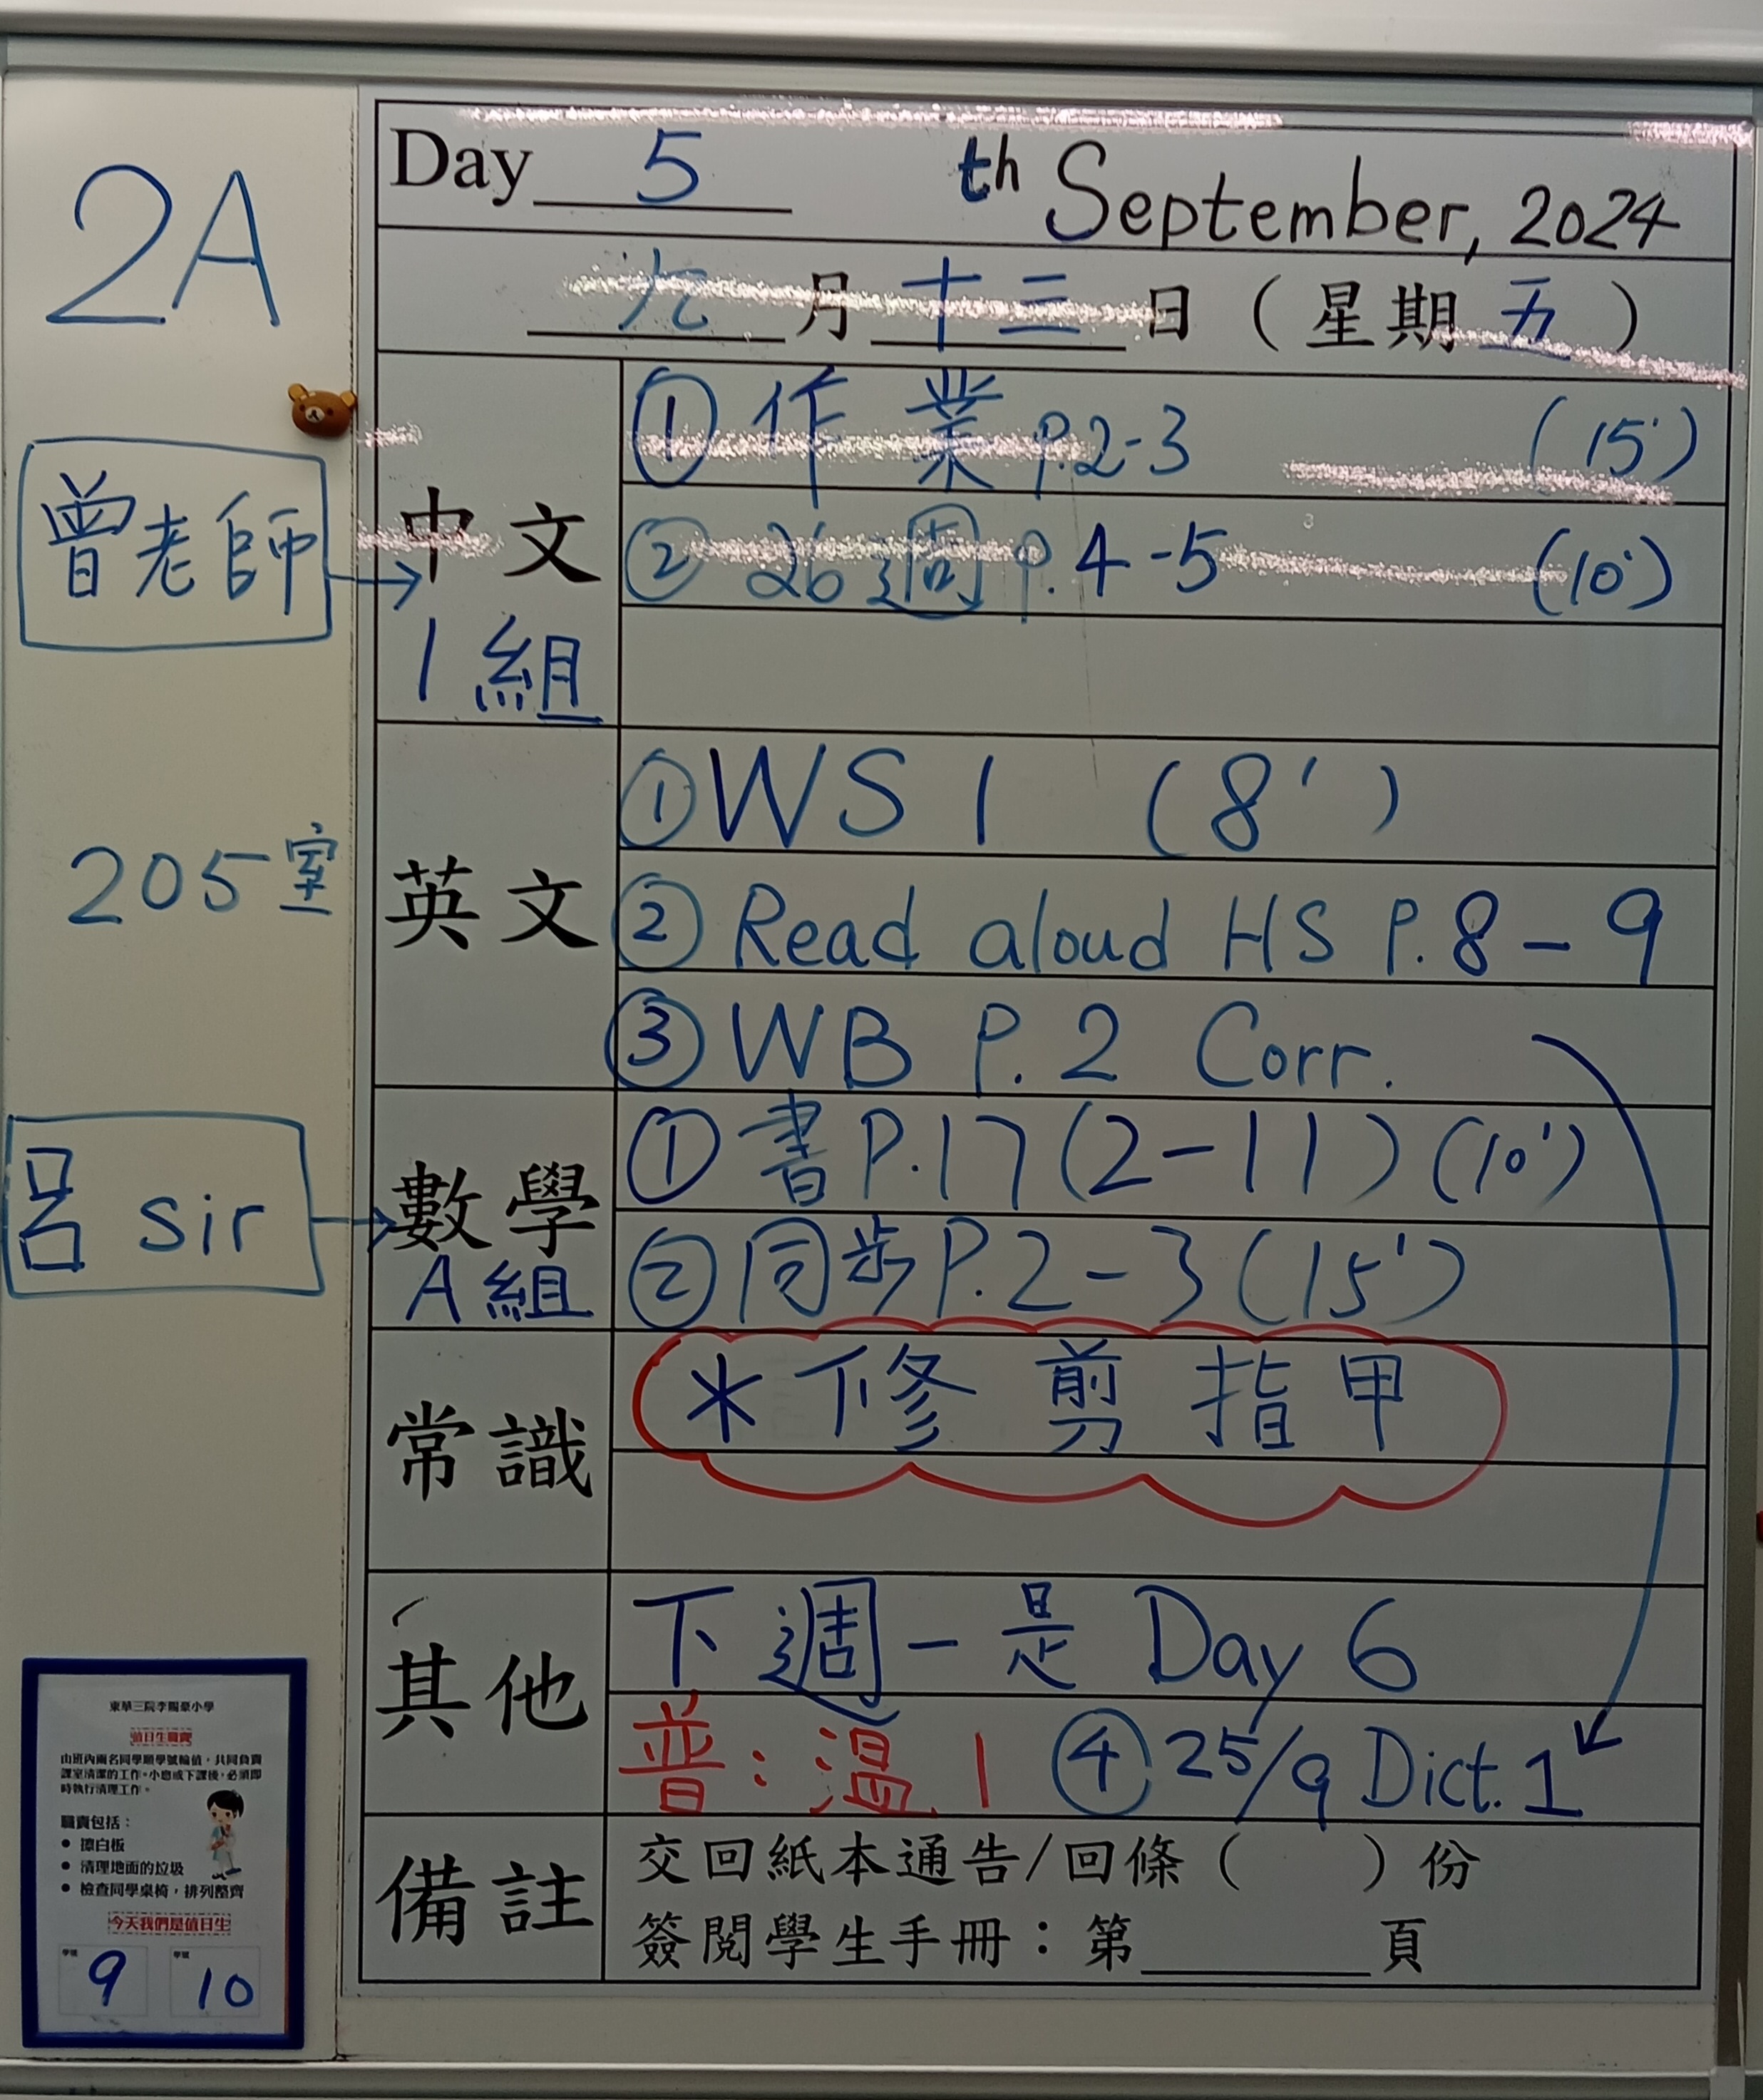 2A
Day 5 th September, 2024
九月十三日（星期五）
曾老師
中文
1組
① 作業 P.2-3 (15')
② 26週 P.4-5 (10')
205室
英文
① WS 1 (8')
② Read aloud HS P.8-9
③ WB P.2 Corr.
呂 sir
數學
A組
① 書P.17(2-11)(10')
② 同步P.2-3(15')
常識
*修剪指甲
其他
下週一是 Day 6
普：溫1 ④ 25/9 Dict.1
備註
交回紙本通告/回條（ ）份
簽閱學生手冊：第____頁
東華三院李賜豪小學
值日生職責
由班內兩名同學順學號輪值，共同負責
課室清潔的工作。小息或下課後，必須即
時執行清理工作。
職責包括：
• 擦白板
• 清理地面的垃圾
• 檢查同學桌椅，排列整齊
今天我們是值日生
學號 學號
9 10